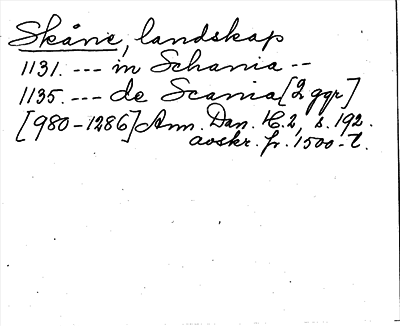 Skåne, landskap
1131. --- in Schania --
1135. --- de Scania [2 ggr]
[980-1286] Ann. Dan. H. 2, s. 192.
avskr. fr. 1500-t.